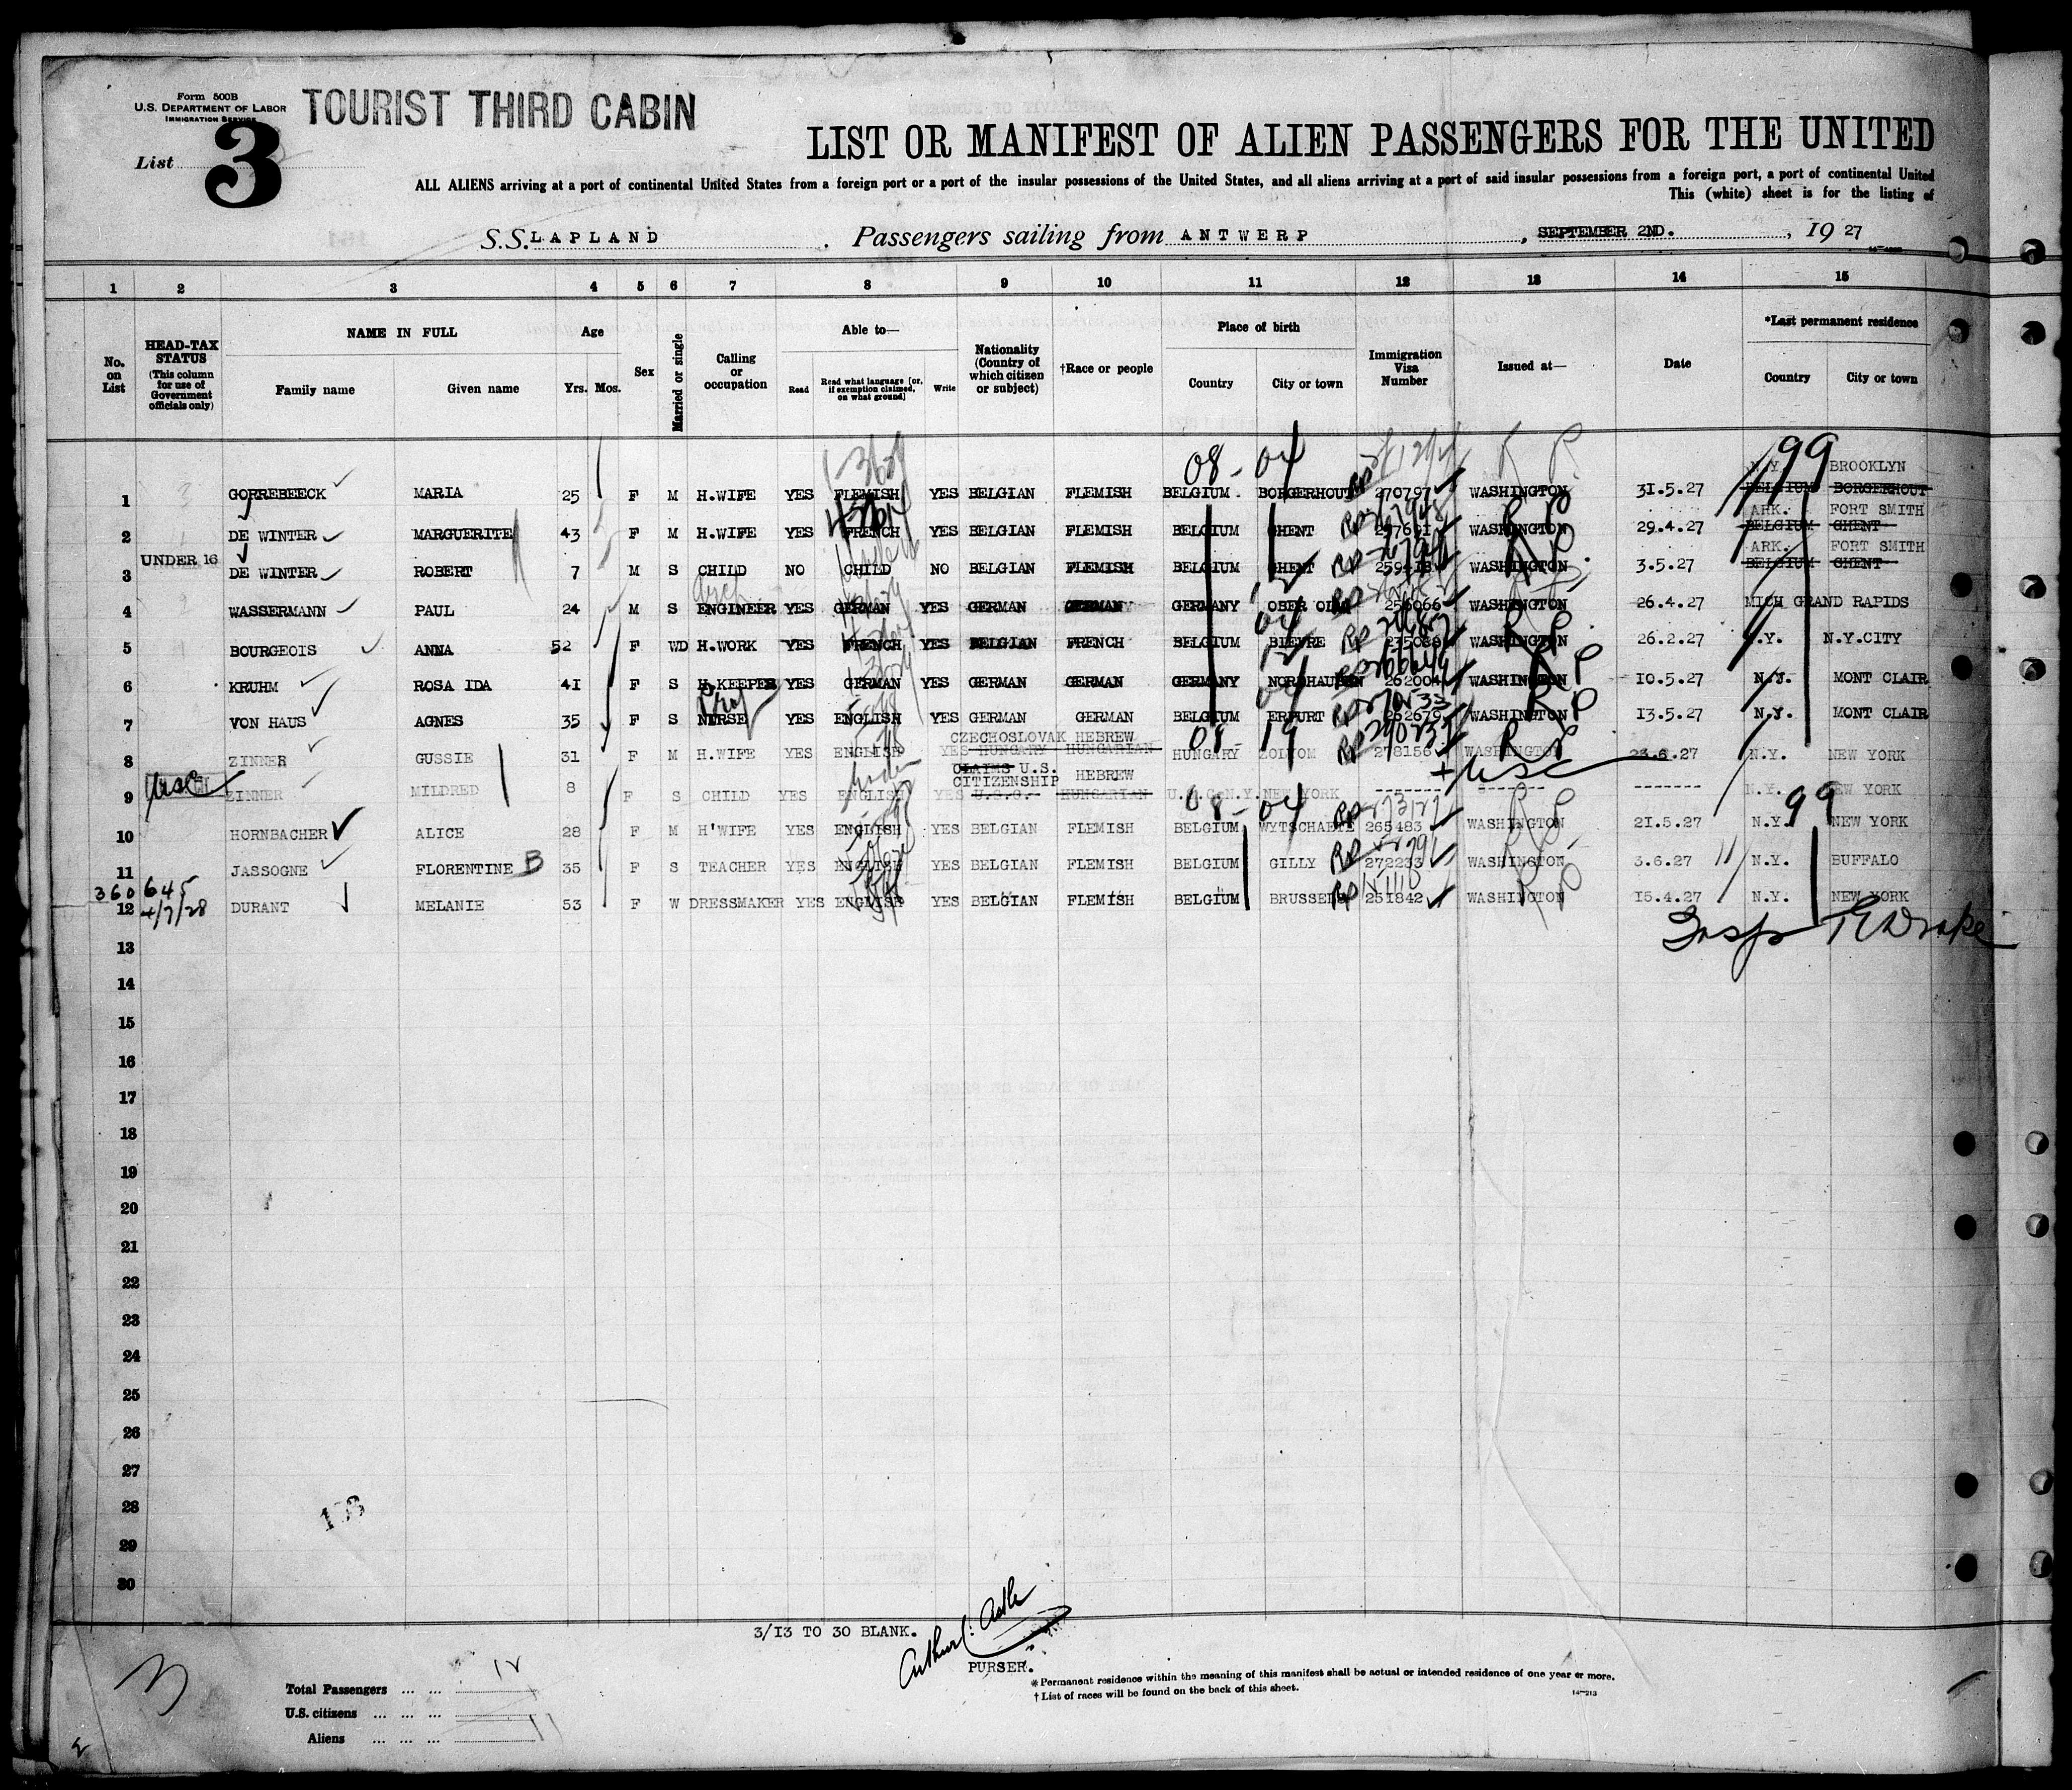 Form 500B
U.S. DEPARTMENT OF LABOR
IMMIGRATION SERVICE
TOURIST THIRD CABIN
List 3
LIST OR MANIFEST OF ALIEN PASSENGERS FOR THE UNITED
ALL ALIENS arriving at a port of continental United States from a foreign port or a port of the insular possessions of the United States, and all aliens arriving at a port of said insular possessions from a foreign port, a port of continental United
This (white) sheet is for the listing of
S.S. LAPLAND. Passengers sailing from ANTWERP, SEPTEMBER 2ND., 19 27
1 2 3 4 5 6 7 8 9 10 11 12 13 14 15
No. on List
HEAD-TAX STATUS (This column for use of Government officials only)
NAME IN FULL
Family name Given name
Age
Yrs. Mos.
Sex
Married or single
Calling or occupation
Able to—
Read
Read what language [or, if exemption claimed, on what ground]
Write
Nationality (Country of which citizen or subject)
†Race or people
Place of birth
Country City or town
Immigration Visa Number
Issued at—
Date
*Last permanent residence
Country City or town
08-04 199
N.Y. BROOKLYN
1 GORREBEECK MARIA 25 F M H.WIFE YES FLEMISH YES BELGIAN FLEMISH BELGIUM. BORGERHOUT 270797 WASHINGTON 31.5.27 BELGIUM BORGERHOUT
ARK. FORT SMITH
2 DE WINTER MARGUERITE 43 F M H.WIFE YES FRENCH YES BELGIAN FLEMISH BELGIUM GHENT WASHINGTON 29.4.27 BELGIUM GHENT
UNDER 16
ARK. FORT SMITH
3 DE WINTER ROBERT 7 M S CHILD NO CHILD NO BELGIAN FLEMISH BELGIUM GHENT WASHINGTON 3.5.27 BELGIUM GHENT
4 WASSERMANN PAUL 24 M S ENGINEER YES GERMAN YES GERMAN GERMAN GERMANY OBER 256066 WASHINGTON 26.4.27 MICH GRAND RAPIDS
5 BOURGEOIS ANNA 52 F WD H.WORK YES FRENCH YES BELGIAN FRENCH BELGIUM BIEVRE WASHINGTON 26.2.27 N.Y. N.Y.CITY
6 KRUHM ROSA IDA 41 F S H.KEEPER YES GERMAN YES GERMAN GERMAN GERMANY NORDHAUSEN 262004 WASHINGTON 10.5.27 N.J. MONT CLAIR
7 VON HAUS AGNES 35 F S NURSE YES ENGLISH YES GERMAN GERMAN BELGIUM ERFURT 262679 WASHINGTON 13.5.27 N.J. MONT CLAIR
CZECHOSLOVAK HEBREW
8 ZINNER GUSSIE 31 F M H.WIFE YES ENGLISH YES HUNGARY HUNGARIAN HUNGARY ZOLIOM 278156 WASHINGTON 23.6.27 N.Y. NEW YORK
CLAIMS U.S. CITIZENSHIP HEBREW
USC
9 ZINNER MILDRED 8 F S CHILD YES ENGLISH YES HUNGARIAN N.Y. NEW YORK ------- ------- N.Y. NEW YORK
08-04 99
10 HORNBACHER ALICE 28 F M H'WIFE YES ENGLISH YES BELGIAN FLEMISH BELGIUM WYTSCHAETE 265483 WASHINGTON 21.5.27 N.Y. NEW YORK
11 JASSOGNE FLORENTINE B 35 F S TEACHER YES ENGLISH YES BELGIAN FLEMISH BELGIUM GILLY 272233 WASHINGTON 3.6.27 N.Y. BUFFALO
360 645
4/7/28
12 DURANT MELANIE 53 F W DRESSMAKER YES ENGLISH YES BELGIAN FLEMISH BELGIUM BRUSSELS 251842 WASHINGTON 15.4.27 N.Y. NEW YORK
Insp
13
14
15
16
17
18
19
20
21
22
23
24
25
26
27
28
29
30
3/13 TO 30 BLANK.
PURSER.
3
Total Passengers ... ... 12
U.S. citizens ... ... ...
Aliens ... ... ... 11
* Permanent residence within the meaning of this manifest shall be actual or intended residence of one year or more.
† List of races will be found on the back of this sheet.
14—213